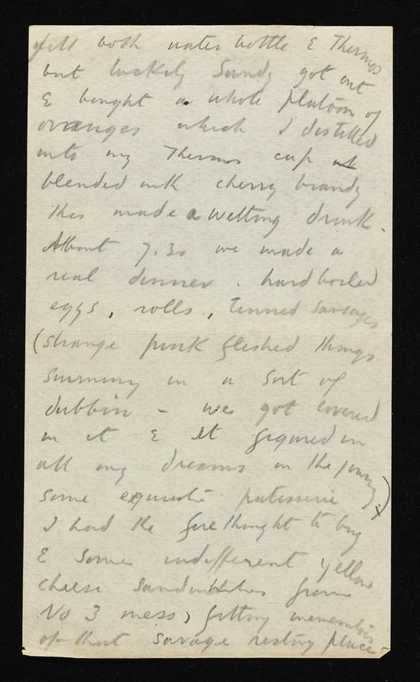 fill both water bottle & Thermos
but luckily Sandy got out
& bought a whole platoon of
oranges which I distilled
into my Thermos cup &
blended with cherry brandy
this made a wetting drink.
About 7.30 we made a
real dinner. hard boiled
eggs, rolls, tinned sausages
(strange pink fleshed things
swimming in a sort of
dubbin – we got covered
in it & it figured in
all my dreams in the
some exquisite patisserie
I had the forethought to buy
& some indifferent yellow
cheese sandwiches from
No 3 mess, fitting
of that savage resting place